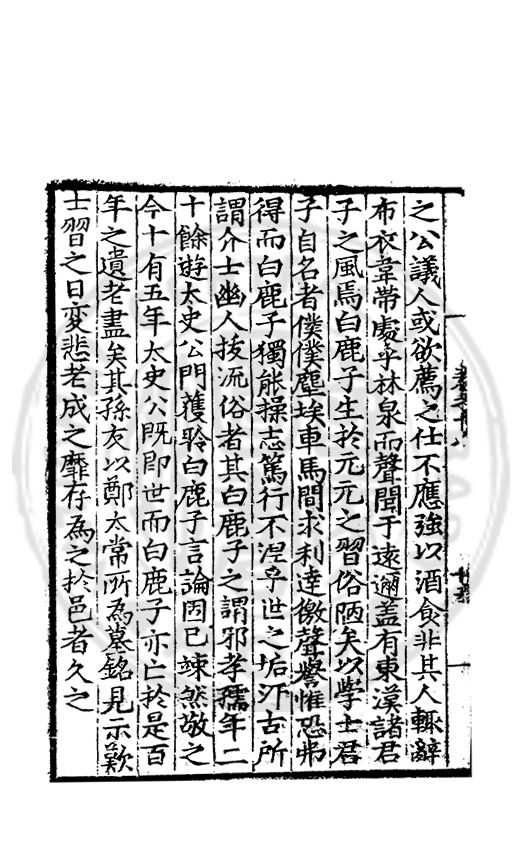 之公議人或欲薦之仕不應強以酒食非其人輒辭
布衣韋帶處乎林泉而聲聞于遠邇蓋有東漢諸君
子之風焉白鹿子生於元元之習俗陋矣以學士君
子自名者僕僕塵埃車馬間求利達徼聲譽惟恐弗
得而白鹿子獨能操志篤行不涅乎世之垢汙古所
謂介士幽人拔流俗者其白鹿子之謂邪孝孺年二
十餘遊太史公門獲聆白鹿子言論固已竦然敬之
今十有五年太史公既即世而白鹿子亦亡於是百
年之遺老盡矣其孫友以鄭太常所為墓銘見示歎
士習之日變悲老成之靡存為之於邑者久之